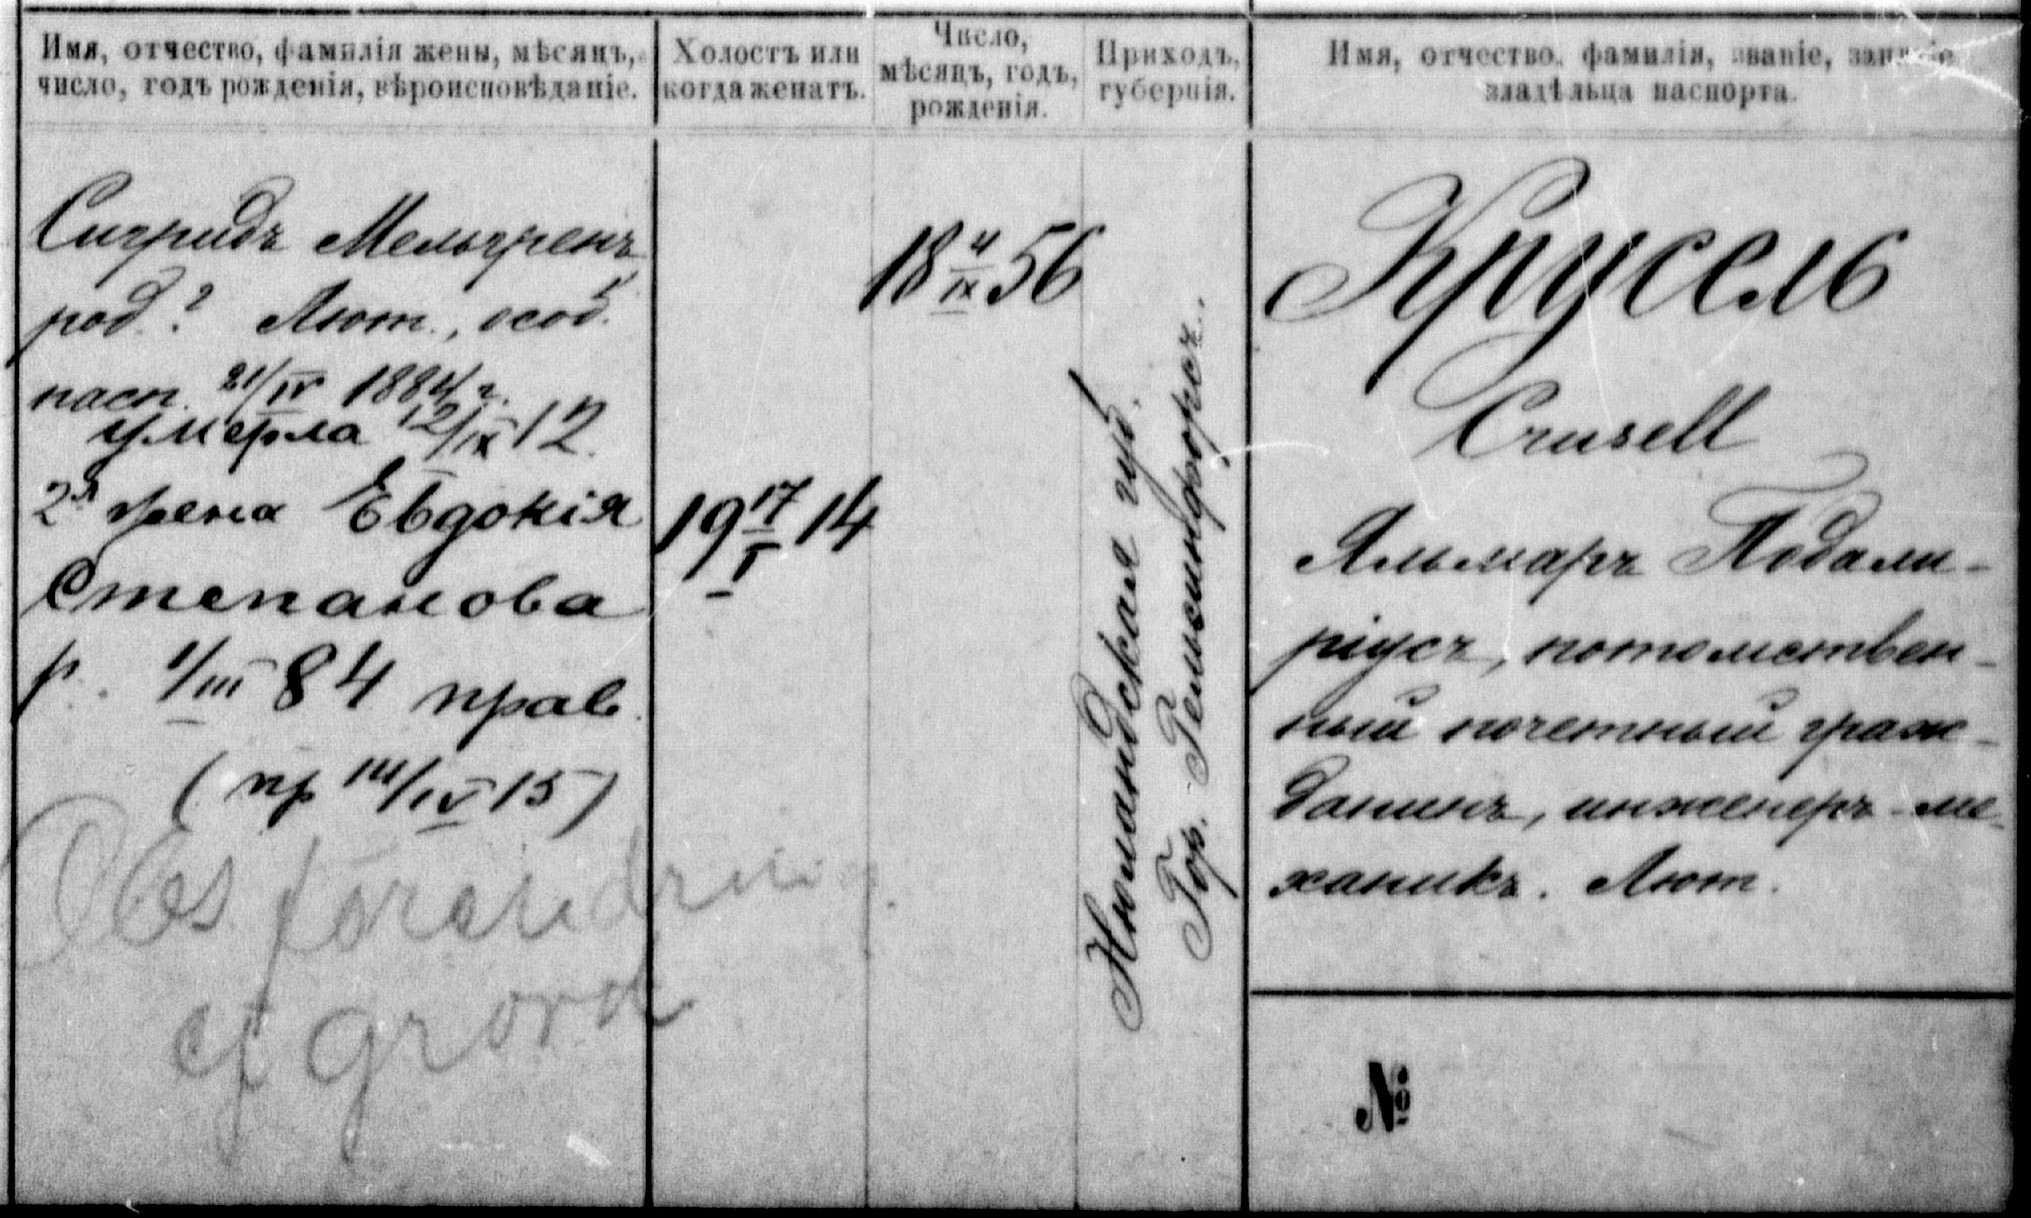 Имя, отчество, фамилія жены, мѣсяцъ,
число, годъ рожденія, вѣроисповѣданіе.
Холостъ или
когда женатъ.
Число,
мѣсяцъ, годъ,
рожденія.
Приходъ,
губернія.
Имя, отчество, фамилія, званіе, занятіе
владѣльца паспорта.
Сигридъ Мельгренъ
род.? Лют., особ.
пасп. 21/IV 1884 г.
умерла 12/IX 12.
2я жена Евдокія
Степанова
р. 1/III 84 прав.
(пр III/IV 15)
Obs förändring
af grord
19 17/I 14
18 4/IX 56
Нюландская губ.
Гор. Гельсингфорсъ.
Крусель
Crusell
Яльмаръ Подали-
ріусъ, потомствен-
ный почетный граж-
данинъ, инженеръ-ме-
ханикъ. Лют.
№